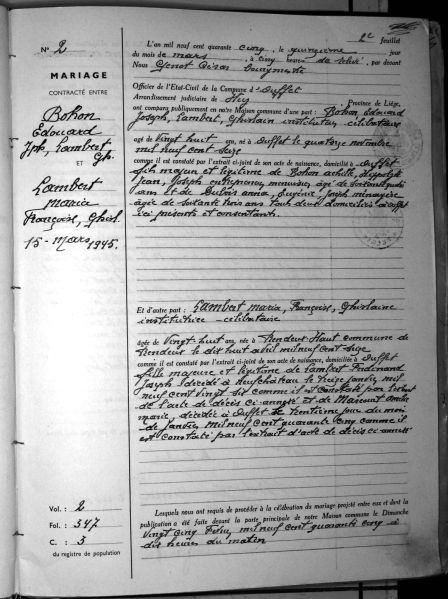 N° 2
MARIAGE
CONTRACTÉ ENTRE
Bohon
Edouard
Jph, Lambert
Gh.
ET
Lambert
Maria
Françoise, Ghisl.
15 - Mars 1945.
Vol. : 2
Fol. : 347
C. : 3
du registre de population
2e feuillet
L'an mil neuf cent quarante cinq, le quinzième jour
du mois de mars, à cinq heures de relevé, par devant
Nous Genot César bourgmestre
Officier de l'Etat-Civil de la Commune d'Ouffet
Arrondissement judiciaire de Huy, Province de Liége,
ont comparu publiquement en notre Maison commune d'une part : Bohon Edouard
Joseph, Lambert, Ghislain instituteur, célibataire
âgé de Vingt huit ans, né à Ouffet le quatorze novembre
mil neuf cent seize
comme il est constaté par l'extrait ci-joint de son acte de naissance, domicilié à Ouffet
fils majeur et légitime de Bohon Achille, Hippolyte
Jean, Joseph entrepreneur menuisier, âgé de soixante quatre
ans et de Dubois Anna, Eugénie, Joseph ménagère
âgée de soixante trois ans tous deux domiciliés à Ouffet
ici présents et consentants.
Et d'autre part : Lambert Maria, Françoise, Ghislaine
institutrice - célibataire
âgée de Vingt-huit ans, née à Rendeux Haut commune de
Rendeux le dix huit avril mil neuf cent seize
comme il est constaté par l'extrait ci-joint de son acte de naissance, domiciliée à Ouffet
fille majeure et légitime de Lambert Ferdinand
Joseph décédé à Neufchâteau le treize janvier mil
neuf cent vingt six comme il est constaté par l'extrait
de l'acte de décès ci-annexé et de Marcourt
Marie, décédée à Ouffet le trentième jour du mois
de janvier mil neuf cent quarante cinq comme il
est constaté par l'extrait d'acte de décès ci-annexé
Lesquels nous ont requis de procéder à la célébration du mariage projeté entre eux et dont la
publication a été faite devant la porte principale de notre Maison commune le Dimanche
vingt cinq février mil neuf cent quarante cinq à
dix heures du matin